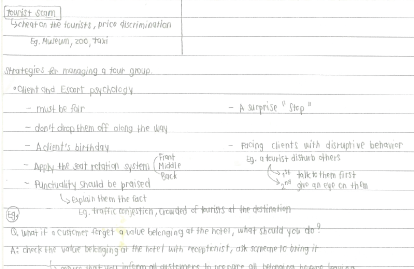 Tourist Scam
↳ cheat on the tourists, price discrimination
Eg. Museum, zoo, taxi
Strategies for managing a tour group
*Client and Escort psychology
- must be fair
- don't drop them off along the way
- A client's birthday
- Apply the seat rotation system Front
Middle
Back
- Punctuality should be praised
↳ Explain them the fact
Eg. traffic congestion, crowded of tourists at the destination
- A surprise "Stop"
- Facing clients with disruptive behavior
Eg. a tourist disturb others
1st talk to them first
2nd give an eye on them
Eg.
Q: what if a customer forget a value belonging at the hotel, what should you do?
A: check the value belonging at the hotel with receptionist, ask someone to bring it
that you inform all customers to prepare all belonging before leaving